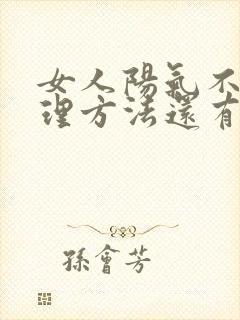 女人陽氣不
理方法還有
孫會芳